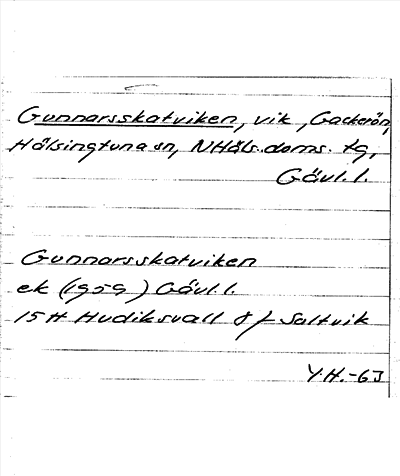 Gunnarsskatviken, vik, Gackerön,
Hälsingtuna sn, NHäls. doms. tg,
Gävl. l.
Gunnarsskatviken
ek (1959) Gävl. l.
15H Hudiksvall 8 f Saltvik
Y.H.-63